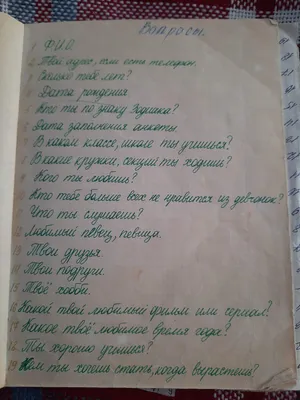 Вопросы.
1 Ф.И.О.
2. Твой адрес, если есть телефон.
3 Сколько тебе лет?
4 Дата рождения
5 Кто ты по знаку Зодиака?
6 Дата заполнения анкеты.
7 В каком классе, школе ты учишься?
8 В какие кружки, секции ты ходишь?
9 Кого ты любишь?
10 Кто тебе больше всех не нравится из девчонок?
11 Что ты слушаешь?
12 Любимый певец, певица.
13 Твои друзья.
14 Твои подруги.
15 Твоё хобби.
16 Какой твой любимый фильм или сериал?
17 Какое твоё любимое время года?
18 Ты хорошо учишься?
19 Кем ты хочешь стать, когда вырастешь?